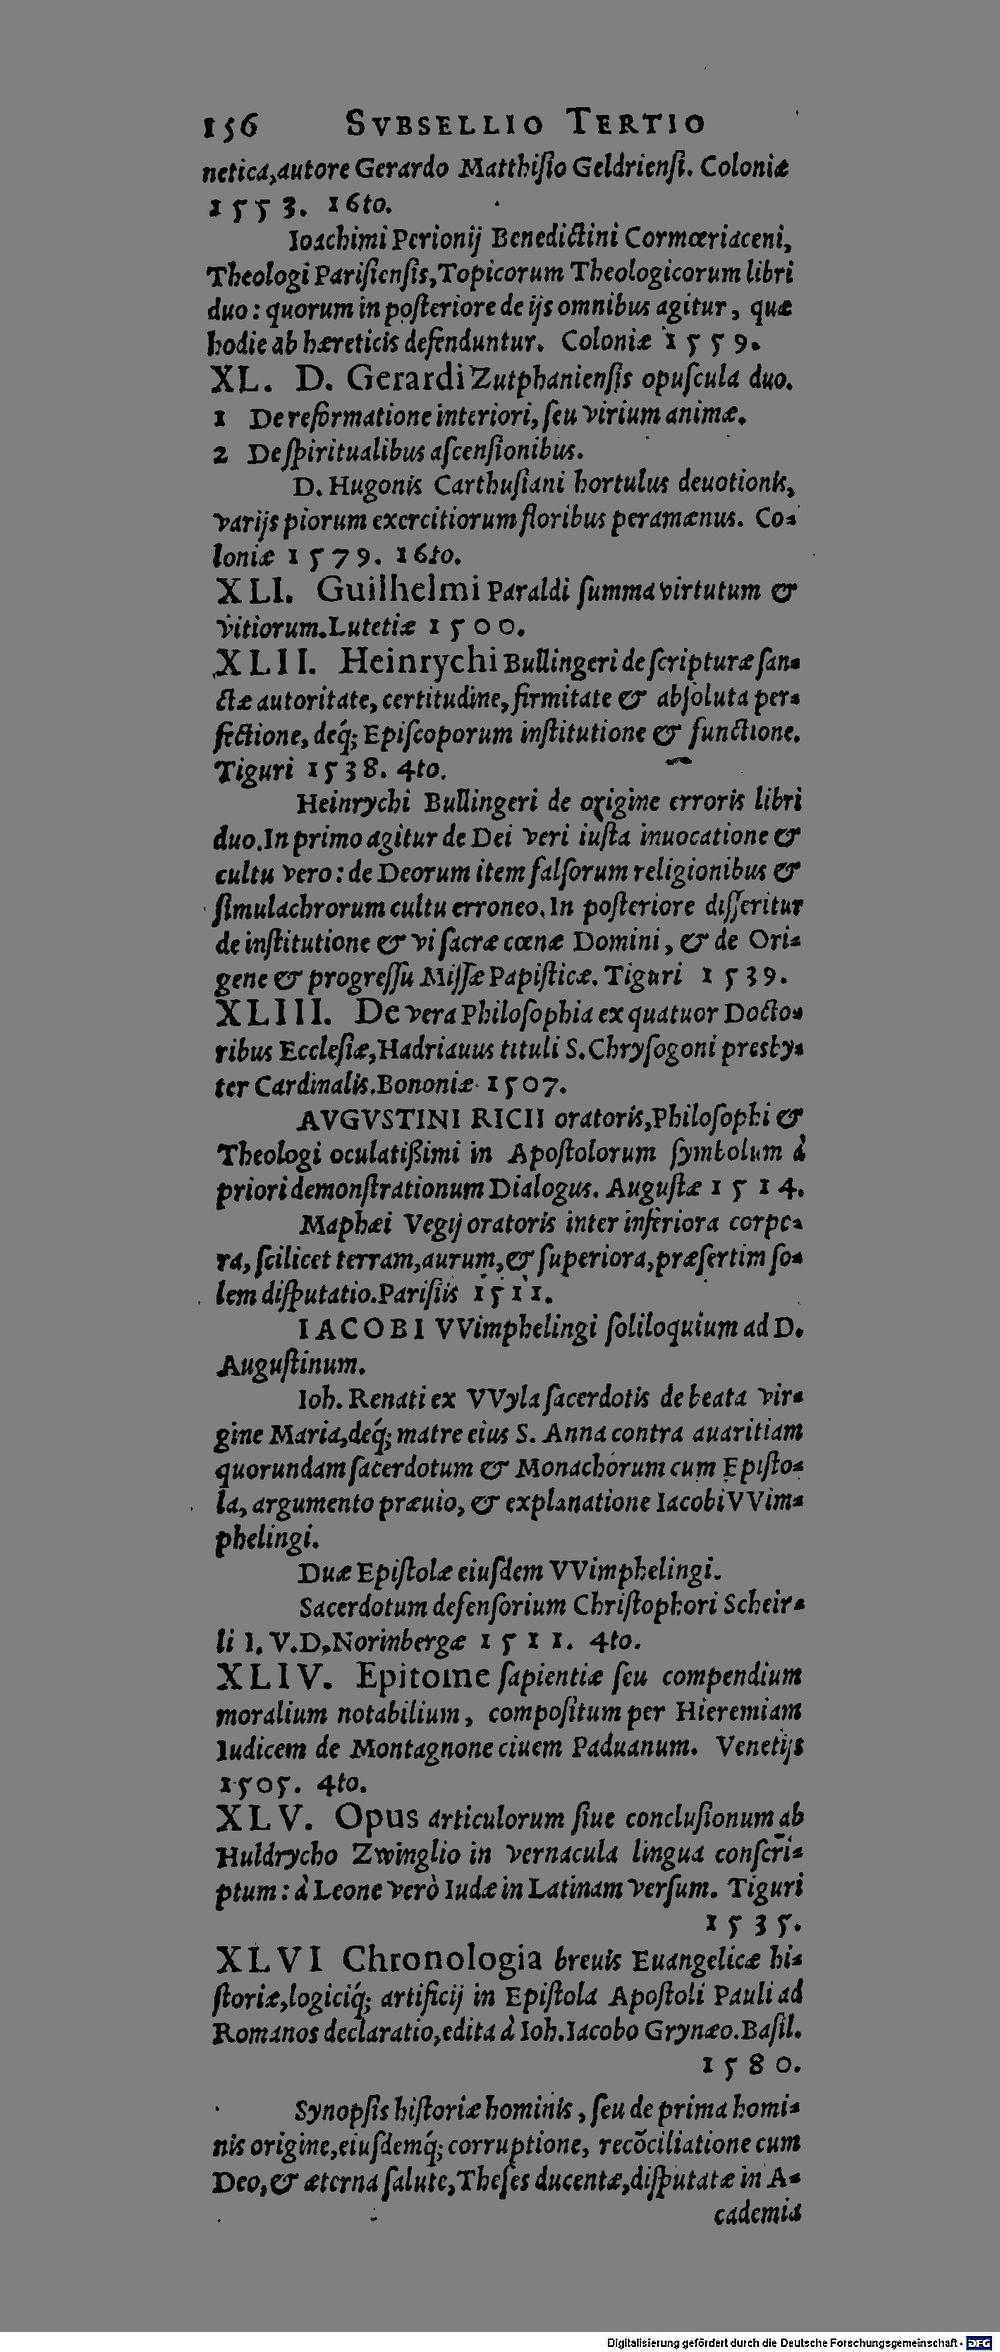 156 SVBSELLIO TERTIO
netica, autore Gerardo Matthiſio Geldrienſi. Coloniæ
1553. 16to.
Ioachimi Perionij Benedictini Cormœriaceni,
Theologi Pariſienſis, Topicorum Theologicorum libri
duo: quorum in poſteriore de ijs omnibus agitur, quæ
hodie ab hæreticis defenduntur. Coloniæ 1559.
XL. D. Gerardi Zutphanienſis opuſcula duo.
1 De reformatione interiori, ſeu virium animæ.
2 De ſpiritualibus aſcenſionibus.
D. Hugonis Carthuſiani hortulus deuotionis,
varijs piorum exercitiorum floribus peramænus. Co-
loniæ 1579. 16to.
XLI. Guilhelmi Paraldi ſumma virtutum &
vitiorum. Lutetiæ 1500.
XLII. Heinrychi Bullingeri de ſcripturæ ſan-
ctæ autoritate, certitudine, firmitate & abſoluta per-
fectione, deq́; Epiſcoporum inſtitutione & functione.
Tiguri 1538. 4to.
Heinrychi Bullingeri de origine erroris libri
duo. In primo agitur de Dei veri iuſta inuocatione &
cultu vero: de Deorum item falſorum religionibus &
ſimulachrorum cultu erroneo. In poſteriore diſſeritur
de inſtitutione & vi ſacræ cœnæ Domini, & de Ori-
gene & progreſſu Miſſæ Papiſticæ. Tiguri 1539.
XLIII. De vera Philoſophia ex quatuor Docto-
ribus Eccleſiæ, Hadriauus tituli S. Chryſogoni presby-
ter Cardinalis. Bononiæ 1507.
AVGVSTINI RICII oratoris, Philoſophi &
Theologi oculatißimi in Apoſtolorum ſymbolum à
priori demonſtrationum Dialogus. Auguſtæ 1514.
Maphæi Vegij oratoris inter inferiora corpo-
ra, ſcilicet terram, aurum, & ſuperiora, præſertim ſo-
lem diſputatio. Pariſiis 1511.
IACOBI VVimphelingi ſoliloquium ad D.
Auguſtinum.
Ioh. Renati ex VVyla ſacerdotis de beata vir-
gine Maria, deq́; matre eius S. Anna contra auaritiam
quorundam ſacerdotum & Monachorum cum Epiſto-
la, argumento præuio, & explanatione Iacobi VVim-
phelingi.
Duæ Epiſtolæ eiuſdem VVimphelingi.
Sacerdotum defenſorium Chriſtophori Scheir-
li I. V. D. Norinbergæ 1511. 4to.
XLIV. Epitome ſapientiæ ſeu compendium
moralium notabilium, compoſitum per Hieremiam
Iudicem de Montagnone ciuem Paduanum. Venetijs
1505. 4to.
XLV. Opus articulorum ſiue concluſionum ab
Huldrycho Zwinglio in vernacula lingua conſcri-
ptum: à Leone verò Iudæ in Latinam verſum. Tiguri
1535.
XLVI Chronologia breuis Euangelicæ hi-
ſtoriæ, logiciq́; artificij in Epiſtola Apoſtoli Pauli ad
Romanos declaratio, edita à Ioh. Iacobo Grynæo. Baſil.
1580.
Synopſis hiſtoriæ hominis, ſeu de prima homi-
nis origine, eiuſdemq́; corruptione, recõciliatione cum
Deo, & æterna ſalute, Theſes ducentæ, diſputatæ in A-
cademia
Digitalisierung gefördert durch die Deutsche Forschungsgemeinschaft - DFG